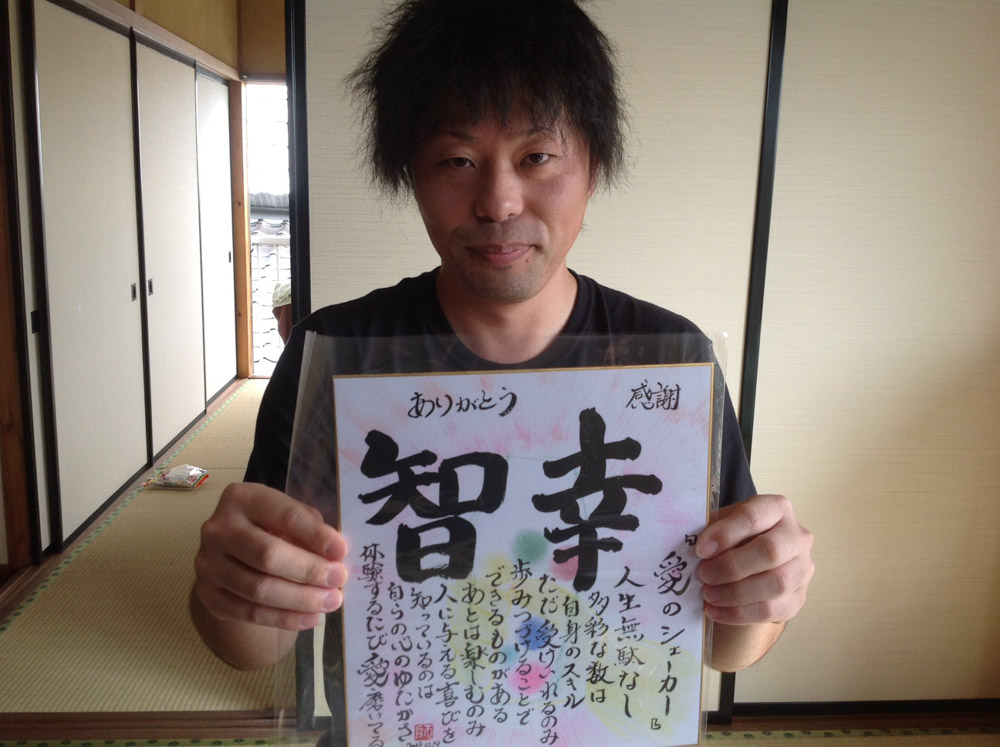 感謝
ありがとう
幸智
「愛のシェーカー」
人生無駄なし
多彩な数は
自身のスキル
ただ受け入れるのみ
歩みつづけることで
できるものがある
あとは楽しむのみ
人に与える喜びを
知っているのは
自らの心のゆたかさ
体験するたび愛磨いてる
師